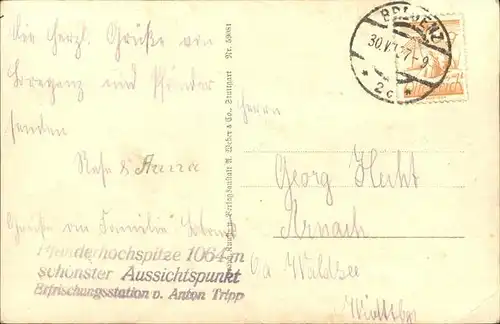 Die herzl. Grüße von
Bregenz und Pfänder
senden
Rosa & Anna
Grüße an Familie
Pfänderhochspitze 1064 m
schönster Aussichtspunkt
Erfrischungsstation v. Anton Tripp
Kunst- u. Verlagsanstalt A. Weber & Co., Stuttgart Nr. 59081
BREGENZ
30.V.27-9
* 2c *
Herrn
Georg Hecht
Arnach
b/a Waldsee
Württbg